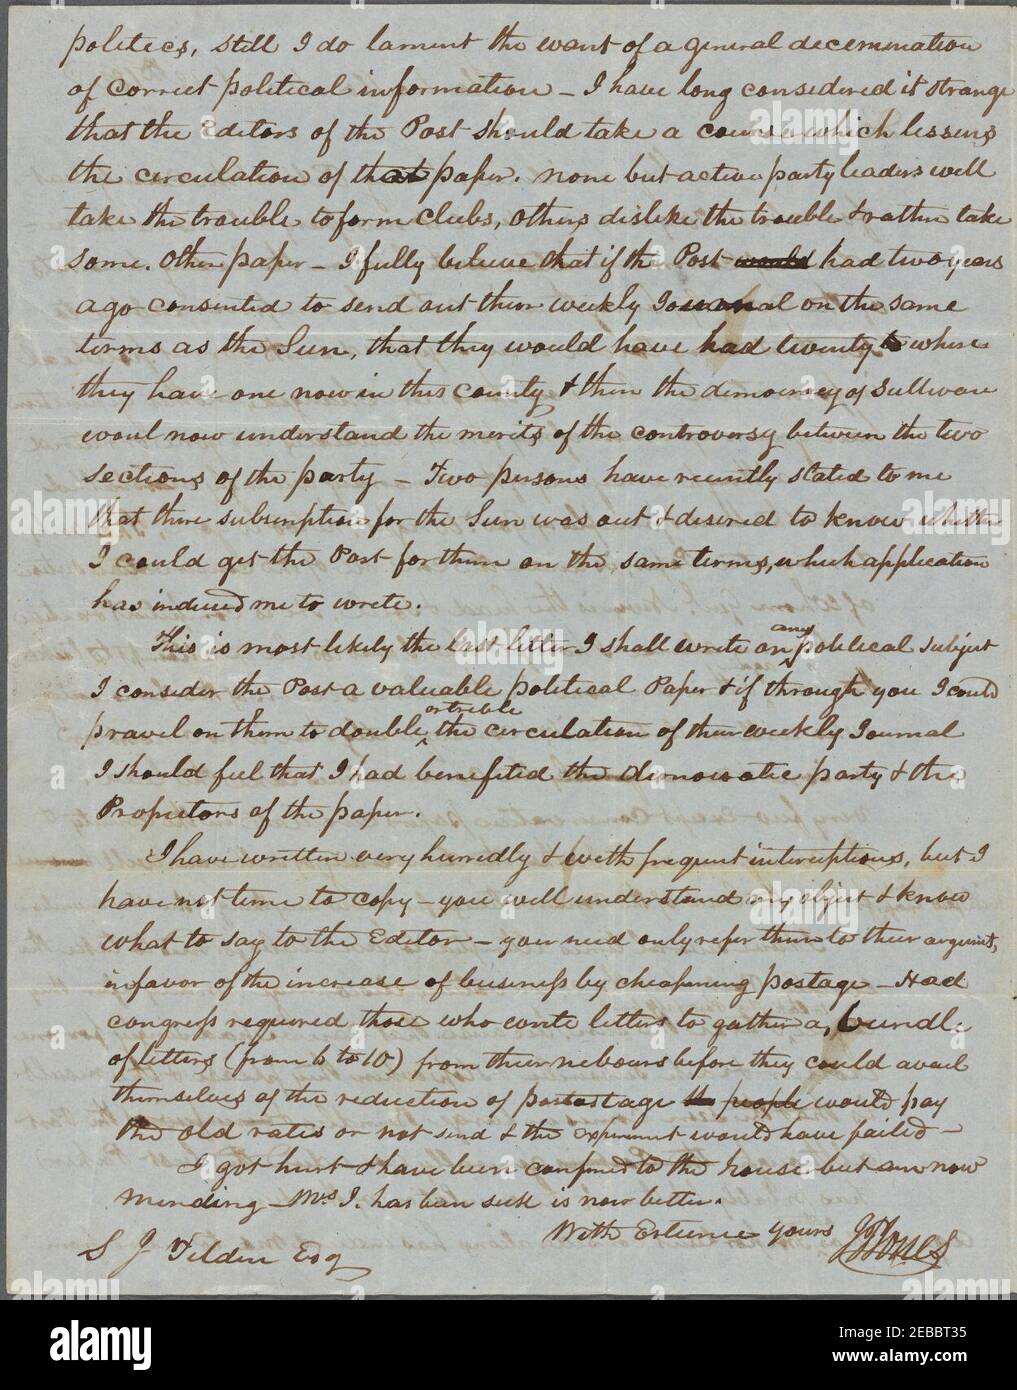 politics, still I do lament the want of a general decemination
of correct political information – I have long considered it strange
that the Editors of the Post should take a course which lessens
the circulation of that paper. none but active party leaders will
take the trouble to form clubs, others dislike the trouble & rather take
some other paper – I fully believe that if the Post would had two years
ago consented to send out their weekly Journal on the same
terms as the Sun, that they would have had twenty to where
they have one now in this county & then the democracy of Sullivan
woul now understand the merits of the controversy between the two
sections of the party – Two persons have recently stated to me
that there subscription for the Sun was out & desired to know whether
I could get the Post for them on the same terms, which application
has induced me to write.
This is most likely the last letter I shall write on any political subject
I consider the Post a valuable political Paper & if through you I could
pravel on them to double or treble the circulation of their weekly Journal
I should feel that I had benefited the democratic party & the
Proprietors of the paper.
I have written very hurredly & with frequent interruptions, but I
have not time to copy – you will understand my object & know
what to say to the Editor – you need only refer them to their argument,
in favor of the increase of business by cheapening postage – Had
congress required those who wrote letters to gather a bundle
of letters (from 6 to 10) from their nebours before they could avail
themselves of the reduction of postage the people would pay
the old rates or not send & the experiment would have failed –
I got hurt & have been confined to the house but am now
mending – Mrs J. has ban sick is now better.
With Esteeme yours Jones
S J Tilden Esq
alamy
Image ID: 2EBBT35
www.alamy.com